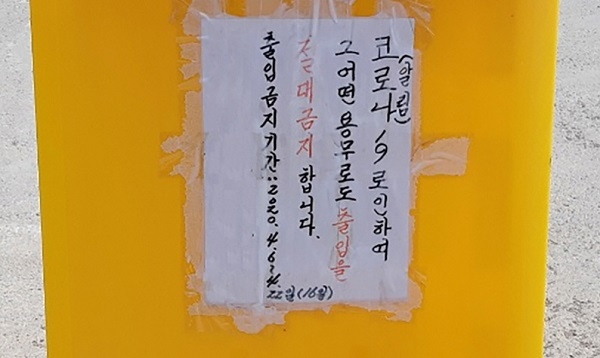 (알림)
코로나 19로 인하여
그 어떤 용무로도 출입을
절대금지 합니다.
출입금지기간:: 2020. 4. 6 ~ 4.
22일 (16일)